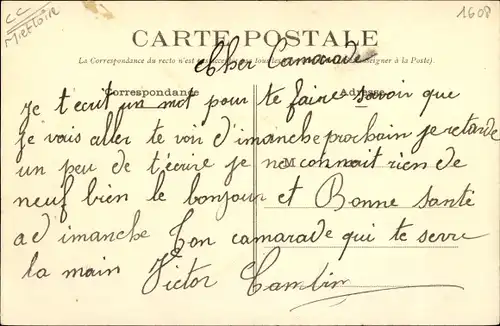 CC
Mettoire
1608
CARTE POSTALE
La Correspondance du recto n'est pas acceptée par tous les pays étrangers (Se renseigner à la Poste).
Cher Camarade
Correspondance
Adresse
Je t'ecrit un mot pour te faire savoir que
je vais aller te voir d'imanche prochain je retarde
un peu de t'écrire je ne connait rien de
M
neuf bien le bonjour et Bonne Santé
a d imanche Ton camarade qui te serre
la main Victor Camblin